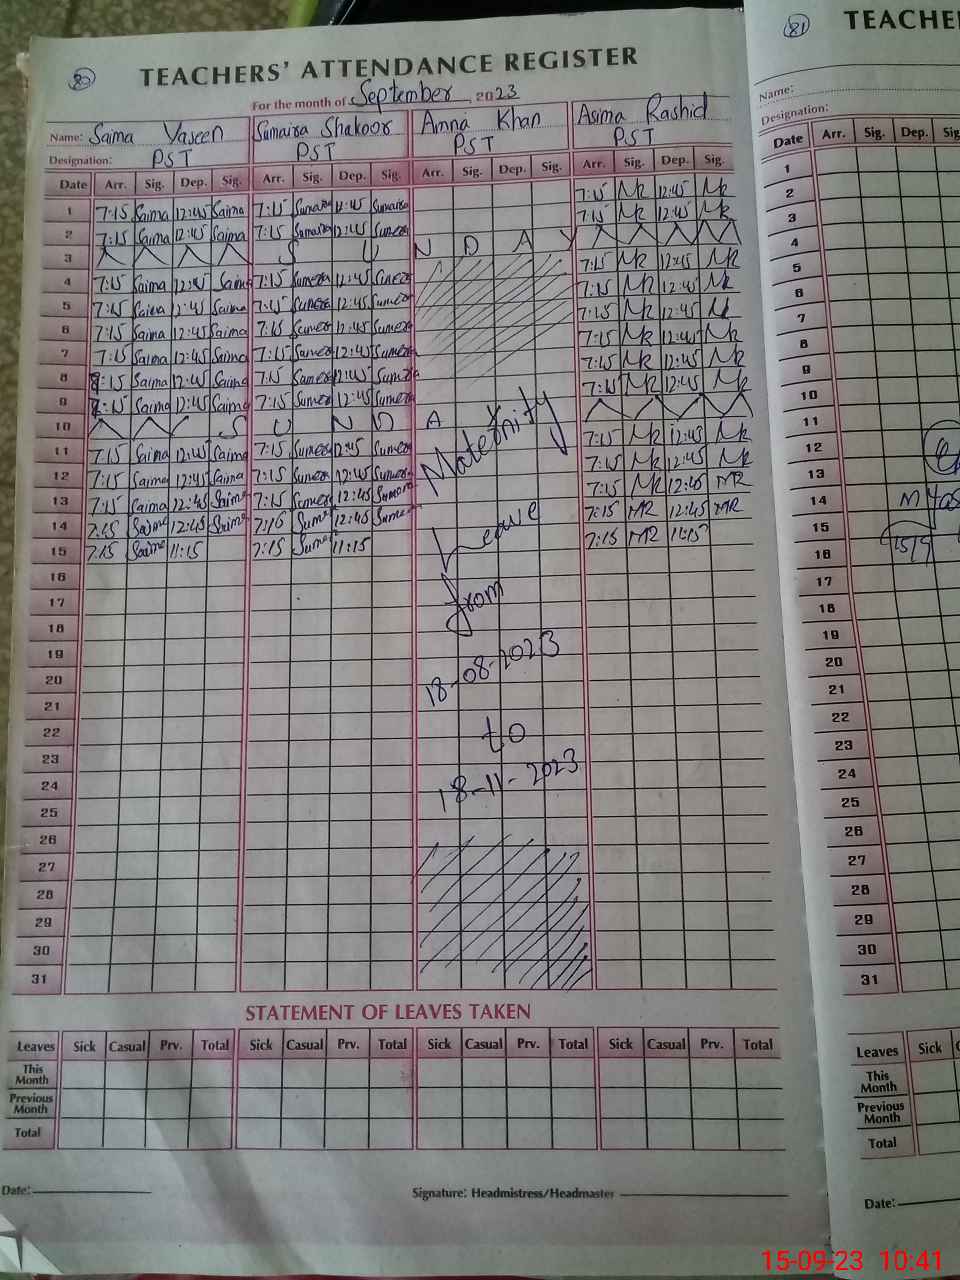 80
TEACHERS' ATTENDANCE REGISTER
For the month of September, 2023
Name: Saima Yaseen Sumaira Shakoor Amna Khan Asima Rashid
Designation: PST PST PST PST
Date Arr. Sig. Dep. Sig. Arr. Sig. Dep. Sig. Arr. Sig. Dep. Sig. Arr. Sig. Dep. Sig.
1 7:15 Saima 12:45 Saima 7:15 Sumaira 12:45 Sumaira 7:15 12:45
2 7:15 Saima 12:45 Saima 7:15 Sumaira 12:45 Sumera 7:15 12:45
3 S U N D A Y
4 7:15 Saima 12:45 Saima 7:15 Sumera 12:45 Sumera 7:15 12:45
5 7:15 Saima 12:45 Saima 7:15 Sumera 12:45 Sumera 7:15 12:45
6 7:15 Saima 12:45 Saima 7:15 Sumera 12:45 Sumera 7:15 12:45
7 7:15 Saima 12:45 Saima 7:15 Sumera 12:45 Sumera 7:15 12:45
8 7:15 Saima 12:45 Saima 7:15 Sumera 12:45 Sumera 7:15 12:45
9 7:15 Saima 12:45 Saima 7:15 Sumera 12:45 Sumera 7:15 12:45
10 S U N D A Y
11 7:15 Saima 12:45 Saima 7:15 Sumera 12:45 Sumera 7:15 12:45
12 7:15 Saima 12:45 Saima 7:15 Sumera 12:45 Sumera 7:15 12:45
13 7:15 Saima 12:45 Saima 7:15 Sumera 12:45 Sumera 7:15 12:45 MR
14 7:15 Saima 12:45 Saima 7:15 Sume 12:45 Sumera 7:15 MR 12:45 MR
15 7:15 Saima 11:15 7:15 Sume 11:15 7:15 MR 11:15
Maternity
Leave
from
18-08-2023
to
18-11-2023
16
17
18
19
20
21
22
23
24
25
26
27
28
29
30
31
STATEMENT OF LEAVES TAKEN
Leaves Sick Casual Prv. Total Sick Casual Prv. Total Sick Casual Prv. Total Sick Casual Prv. Total
This Month
Previous Month
Total
Date: Signature: Headmistress/Headmaster
81
TEACHE
Name:
Designation:
Date Arr. Sig. Dep. Sig
1
2
3
4
5
6
7
8
9
10
11
12
13
14
15
16
17
18
19
20
21
22
23
24
25
26
27
28
29
30
31
Leaves Sick
This Month
Previous Month
Total
Date:
15-09-23 10:41